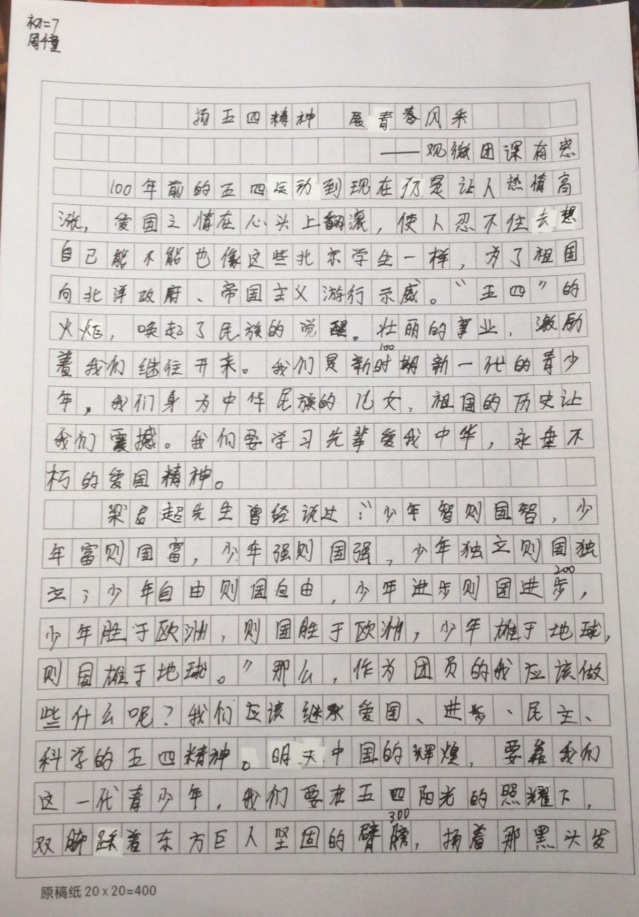 初二7
周千童
扬五四精神 展青春风采
——观微团课有感
100年前的五四运动到现在仍是让人热情高
涨，爱国之情在心头上翻滚，使人忍不住去想
自己能不能也像这些北京学生一样，为了祖国
向北洋政府、帝国主义游行示威。“五四”的
火炬，唤起了民族的觉醒。壮丽的事业，激励
着我们继往开来。我们是新时期新一代的青少
100
年，我们身为中华民族的儿女，祖国的历史让
我们震撼。我们要学习先辈爱我中华，永垂不
朽的爱国精神。
梁启超先生曾经说过：“少年智则国智，少
年富则国富，少年强则国强，少年独立则国独
立；少年自由则国自由，少年进步则国进步，
200
少年胜于欧洲，则国胜于欧洲，少年雄于地球，
则国雄于地球。”那么，作为团员的我应该做
些什么呢？我们应该继承爱国、进步、民主、
科学的五四精神。明天中国的辉煌，要靠我们
这一代青少年，我们要在五四阳光的照耀下，
双脚踩着东方巨人坚固的臂膀，扬着那黑头发
300
原稿纸20×20=400